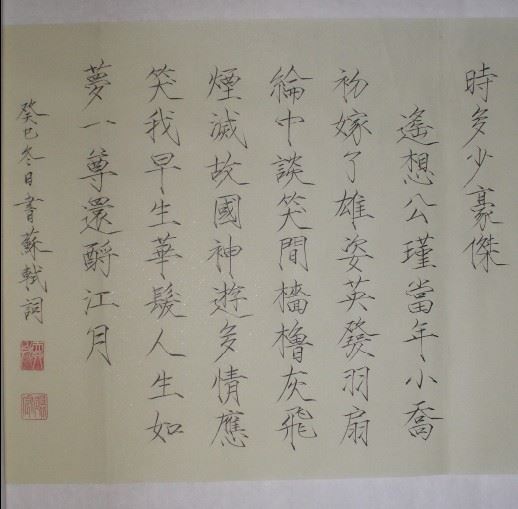 時多少豪傑
遙想公瑾當年小喬
初嫁了雄姿英發羽扇
綸巾談笑間檣櫓灰飛
煙滅故國神遊多情應
笑我早生華髮人生如
夢一尊還酹江月
癸巳冬日書蘇軾詞